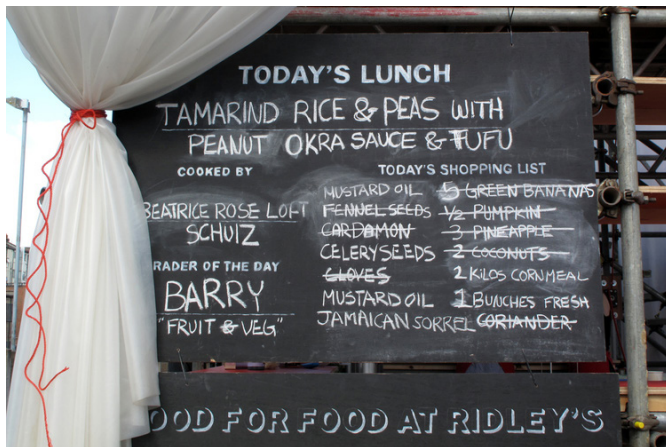 TODAY'S LUNCH
TAMARIND RICE & PEAS WITH
PEANUT OKRA SAUCE & FUFU
COOKED BY
BEATRICE ROSE LOFT
SCHULZ
RADER OF THE DAY
BARRY
"FRUIT & VEG"
TODAY'S SHOPPING LIST
MUSTARD OIL
FENNEL SEEDS
CARDAMON
CELERY SEEDS
CLOVES
MUSTARD OIL
JAMAICAN SORREL
5 GREEN BANANAS
1/2 PUMPKIN
3 PINEAPPLE
2 COCONUTS
2 KILOS CORNMEAL
1 BUNCHES FRESH
CORIANDER
OOD FOR FOOD AT RIDLEY'S